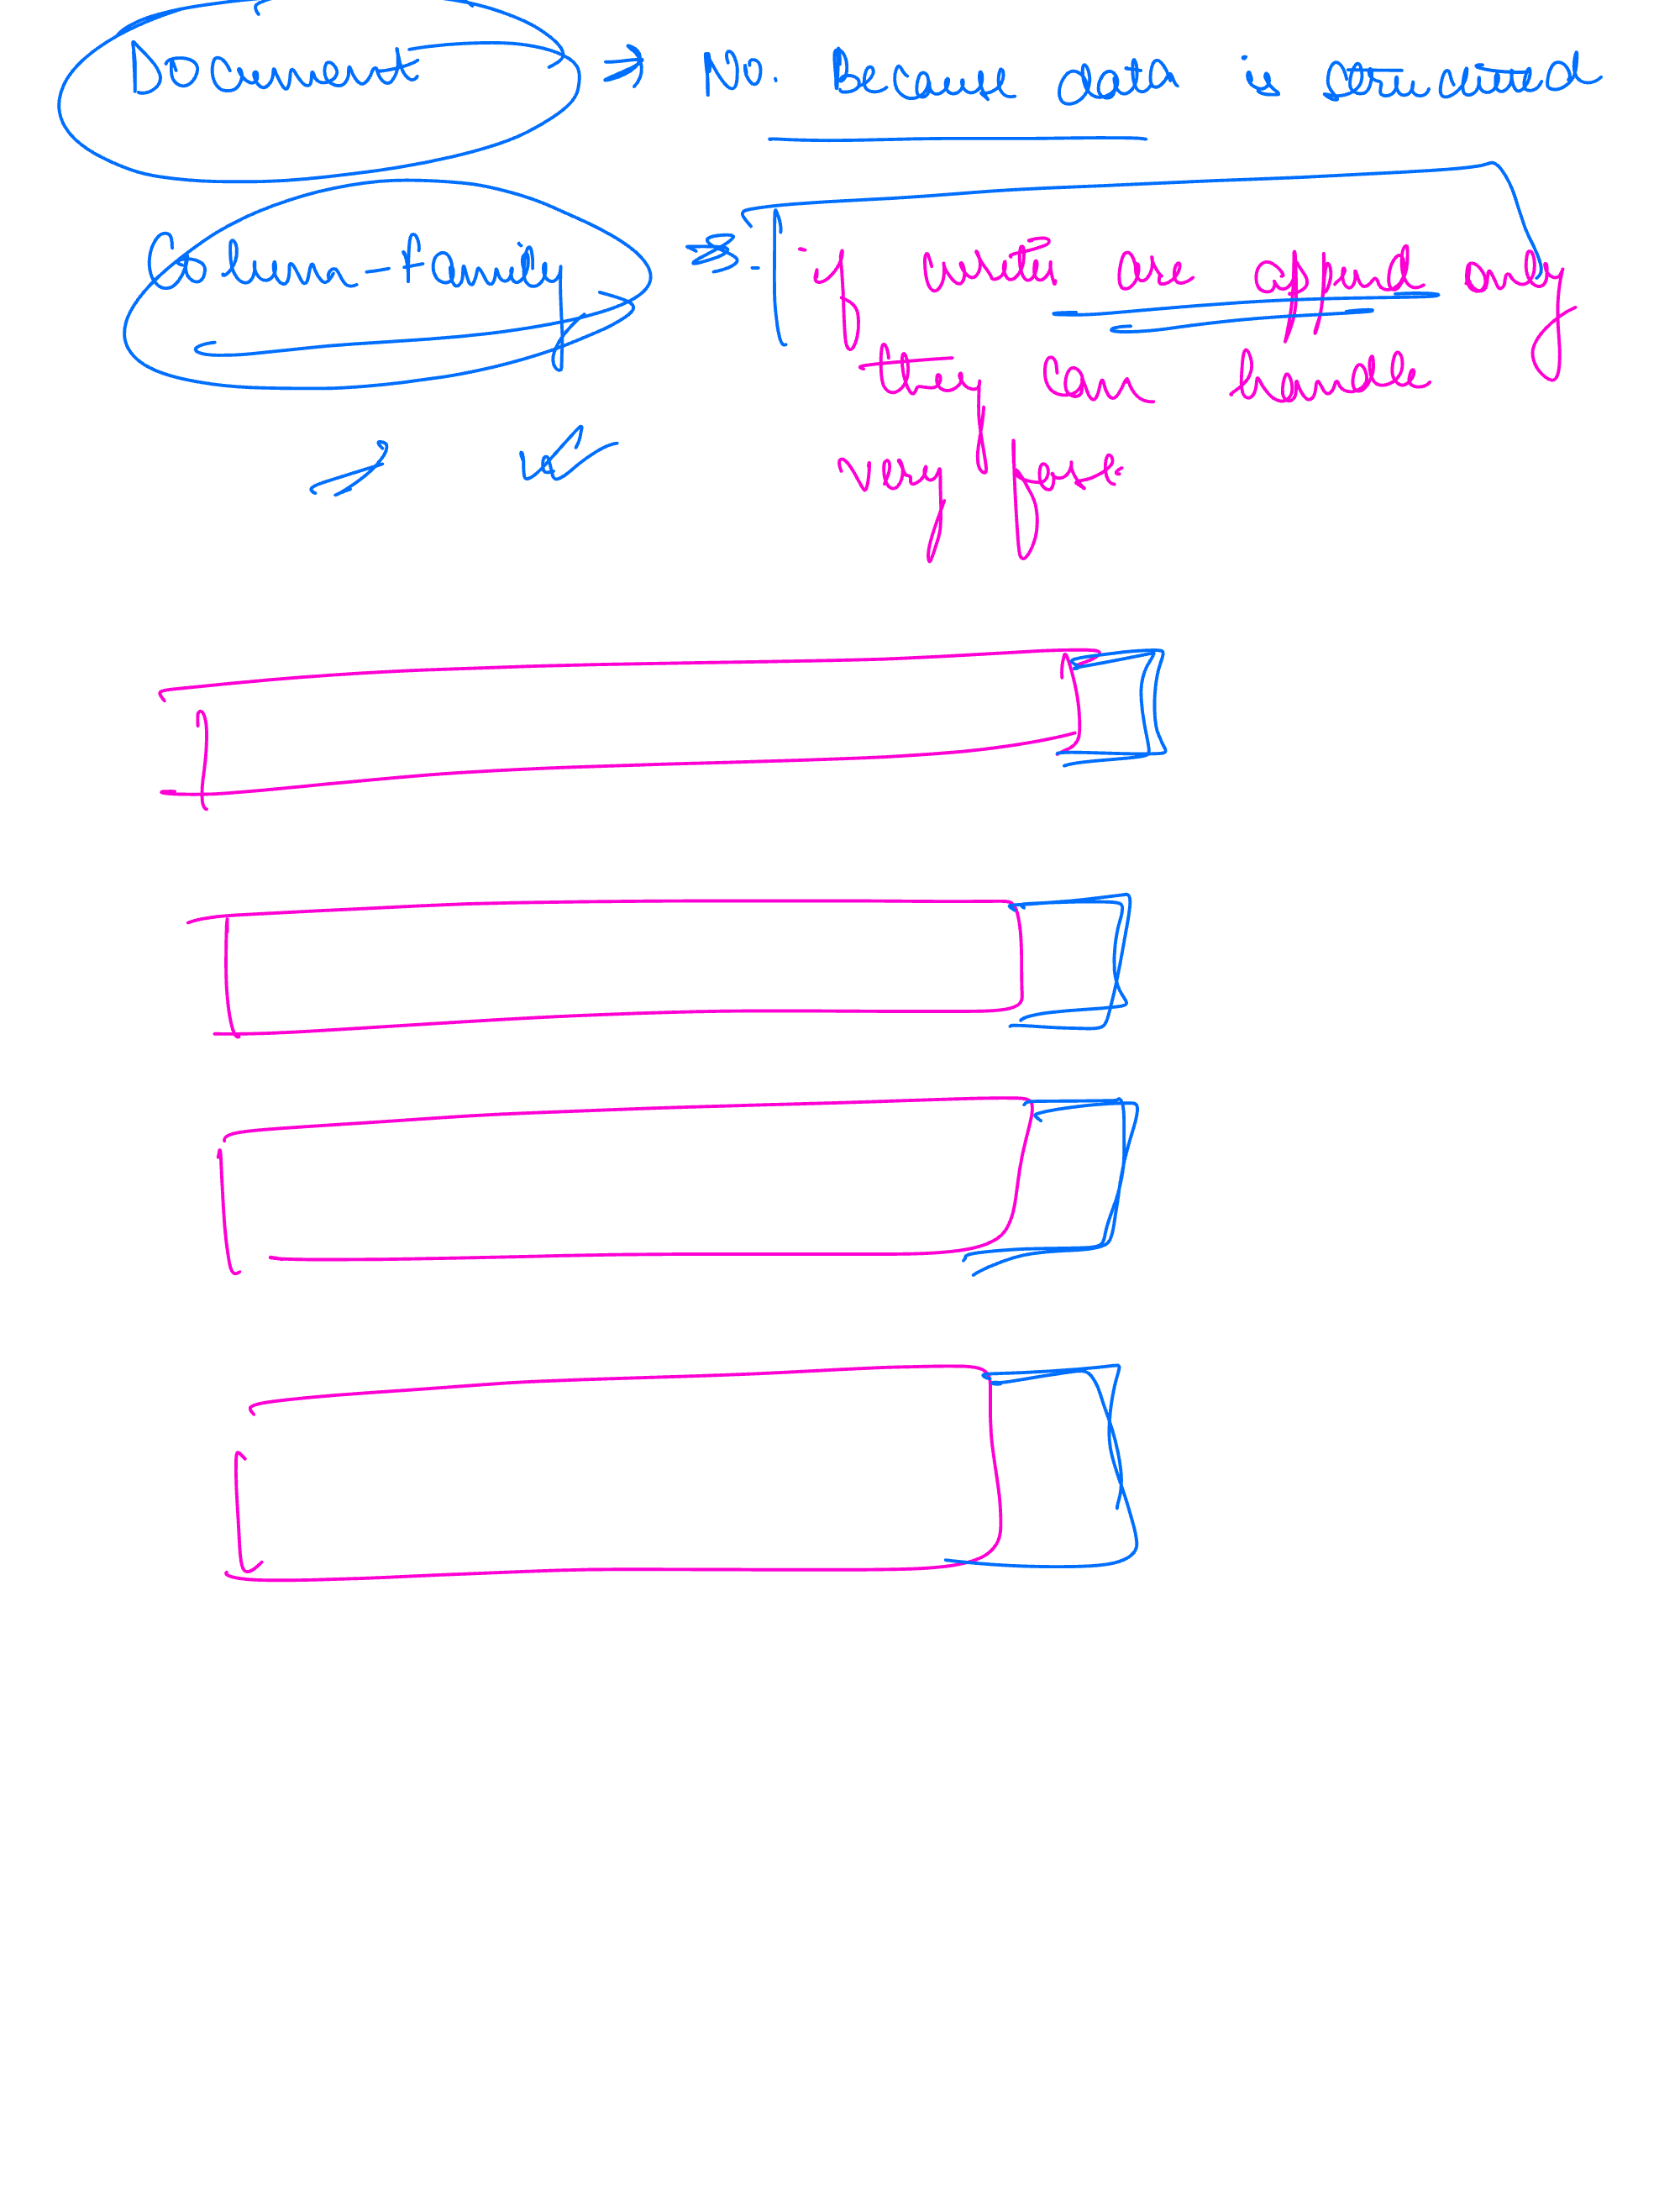 Document → No. Because data is structured
Column-family → - if writes are append only
they can handle
very fast.